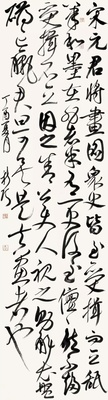 宋元君將畫圖衆史皆至受揖而立舐
筆和墨在外者半有一史後至者儃儃然不趨
受揖不立因之舍公使人視之則解衣般
礴臝君曰可矣是真畫者也
丁酉夏月